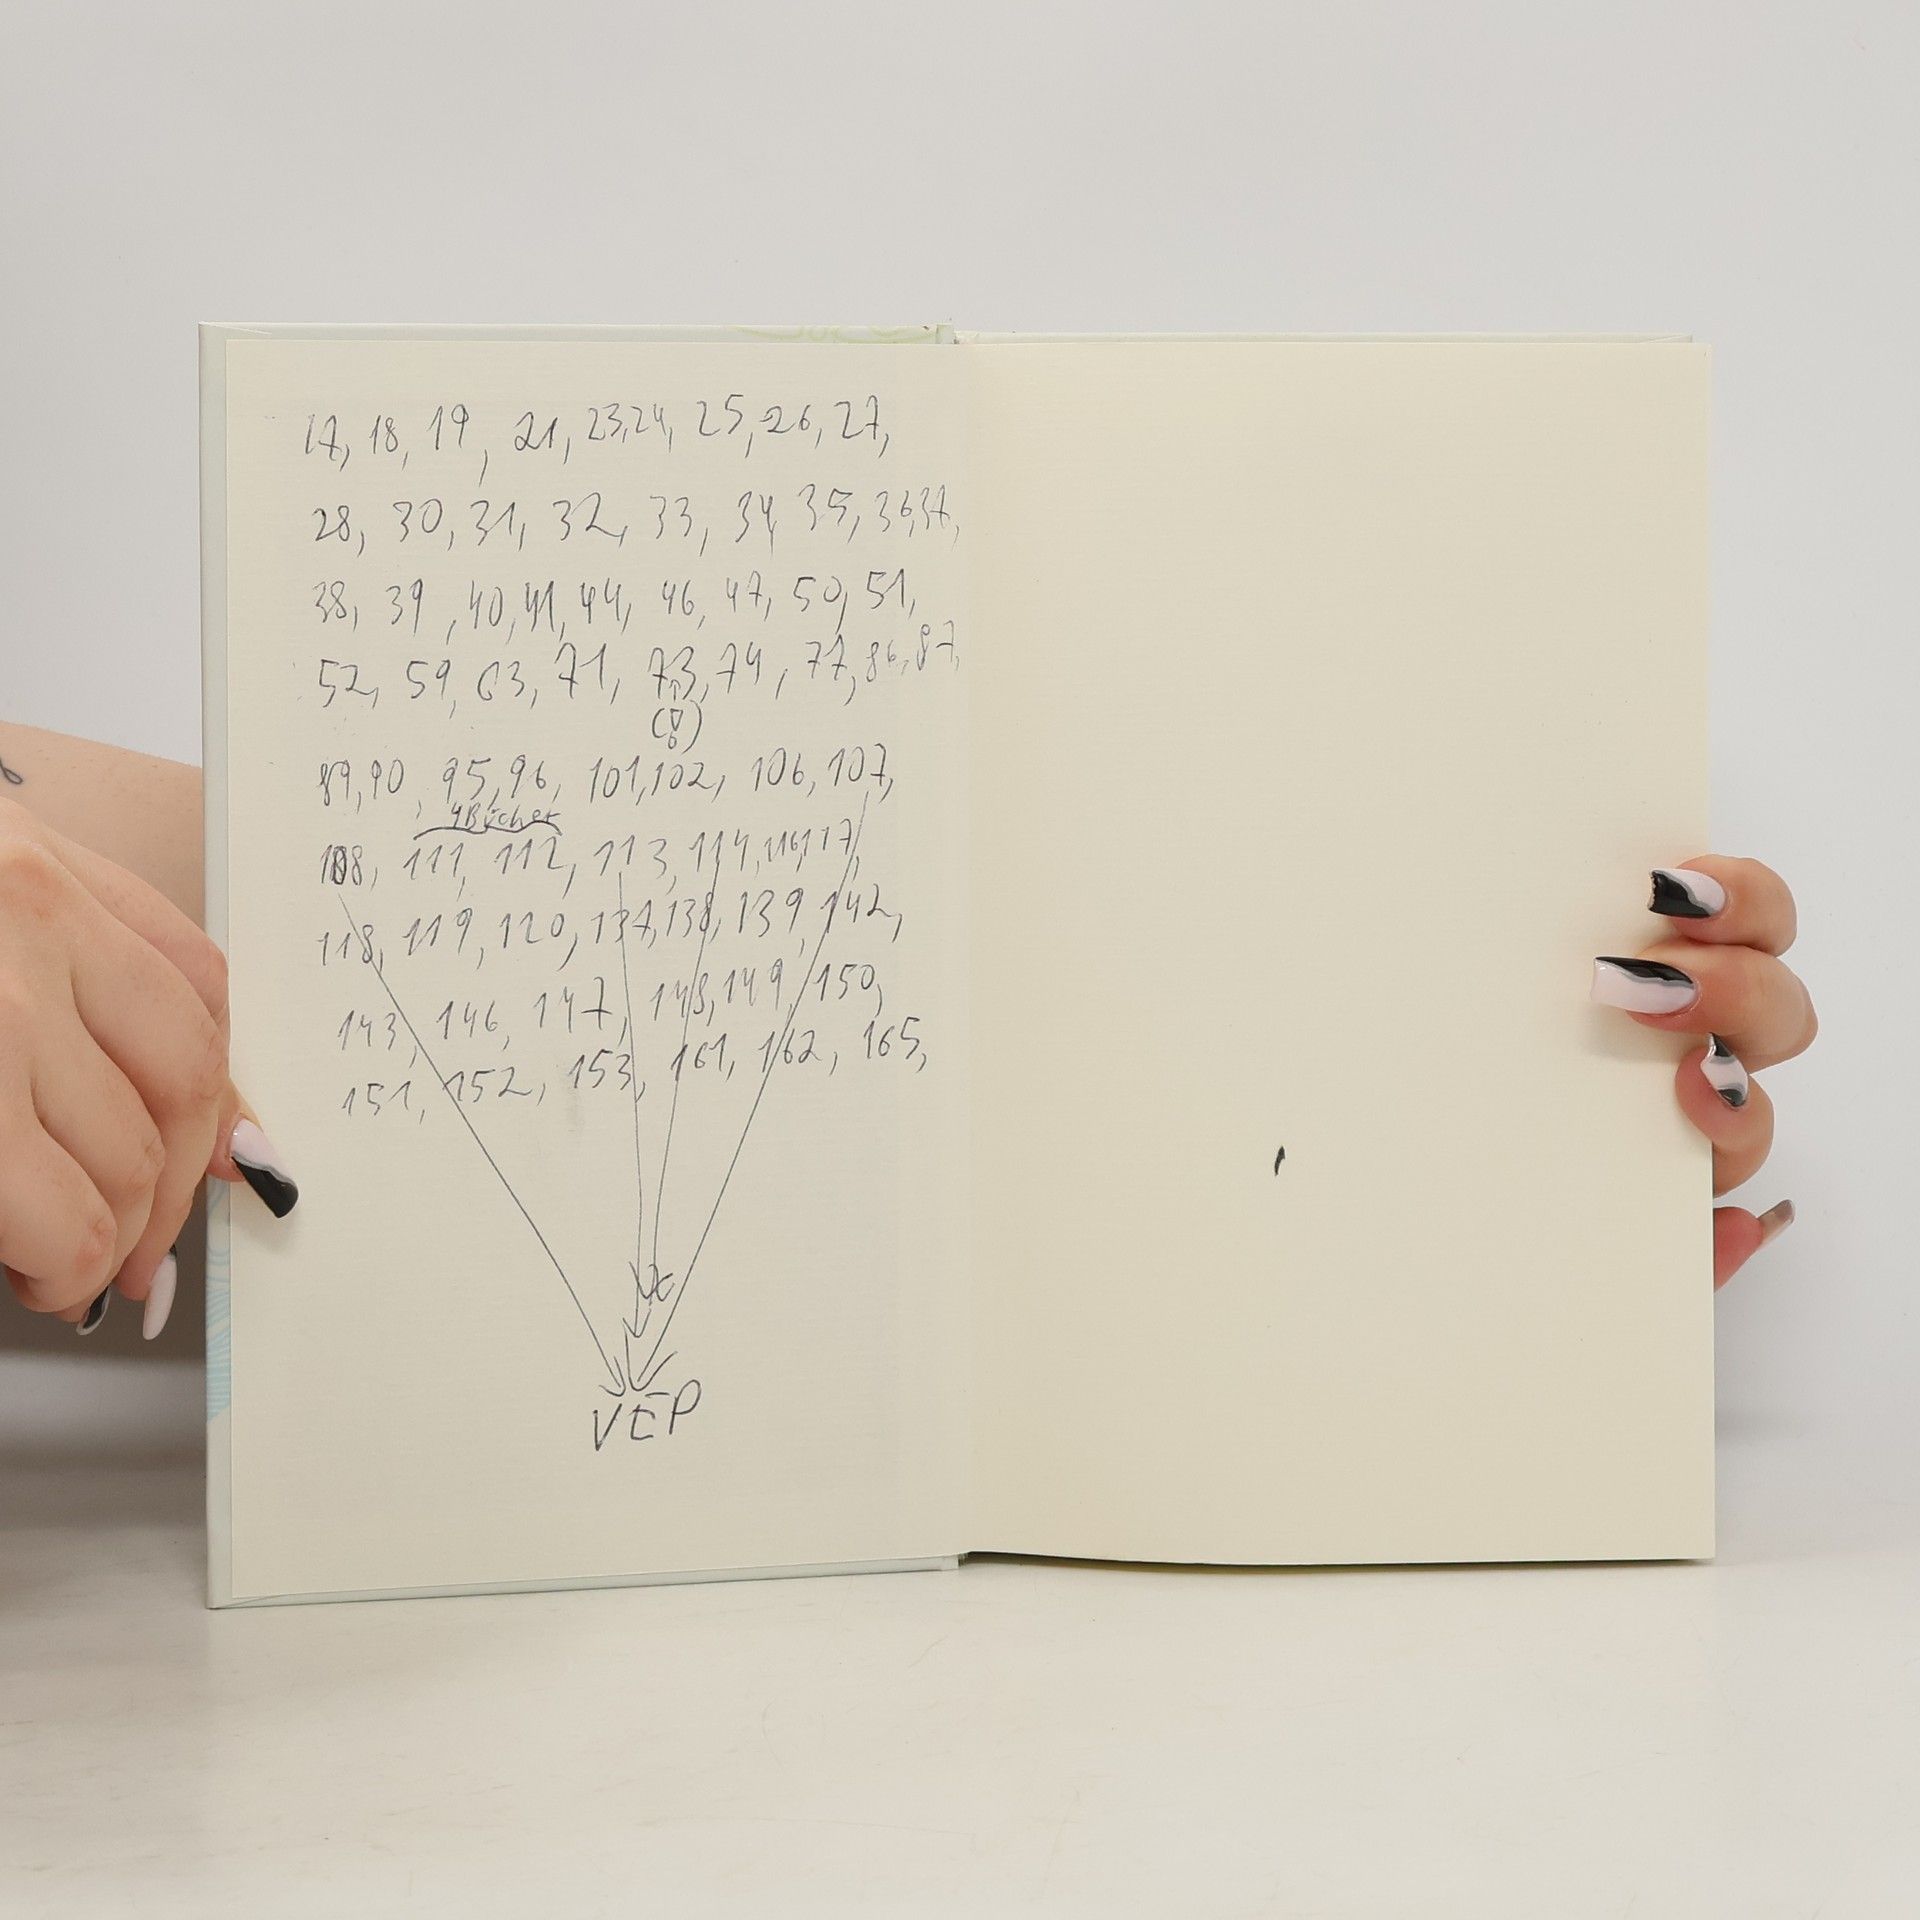 17, 18, 19, 21, 23, 24, 25, 26, 27,
28, 30, 31, 32, 33, 34, 35, 36, 37,
38, 39, 40, 41, 44, 46, 47, 50, 51,
52, 59, 63, 71, 73, 74, 77, 86, 87,
(!)
89, 90, 95, 96, 101, 102, 106, 107,
4 Bücher
108, 111, 112, 113, 114, 116, 117,
118, 119, 120, 137, 138, 139, 142,
143, 146, 147, 148, 149, 150,
151, 152, 153, 161, 162, 165,
VEP